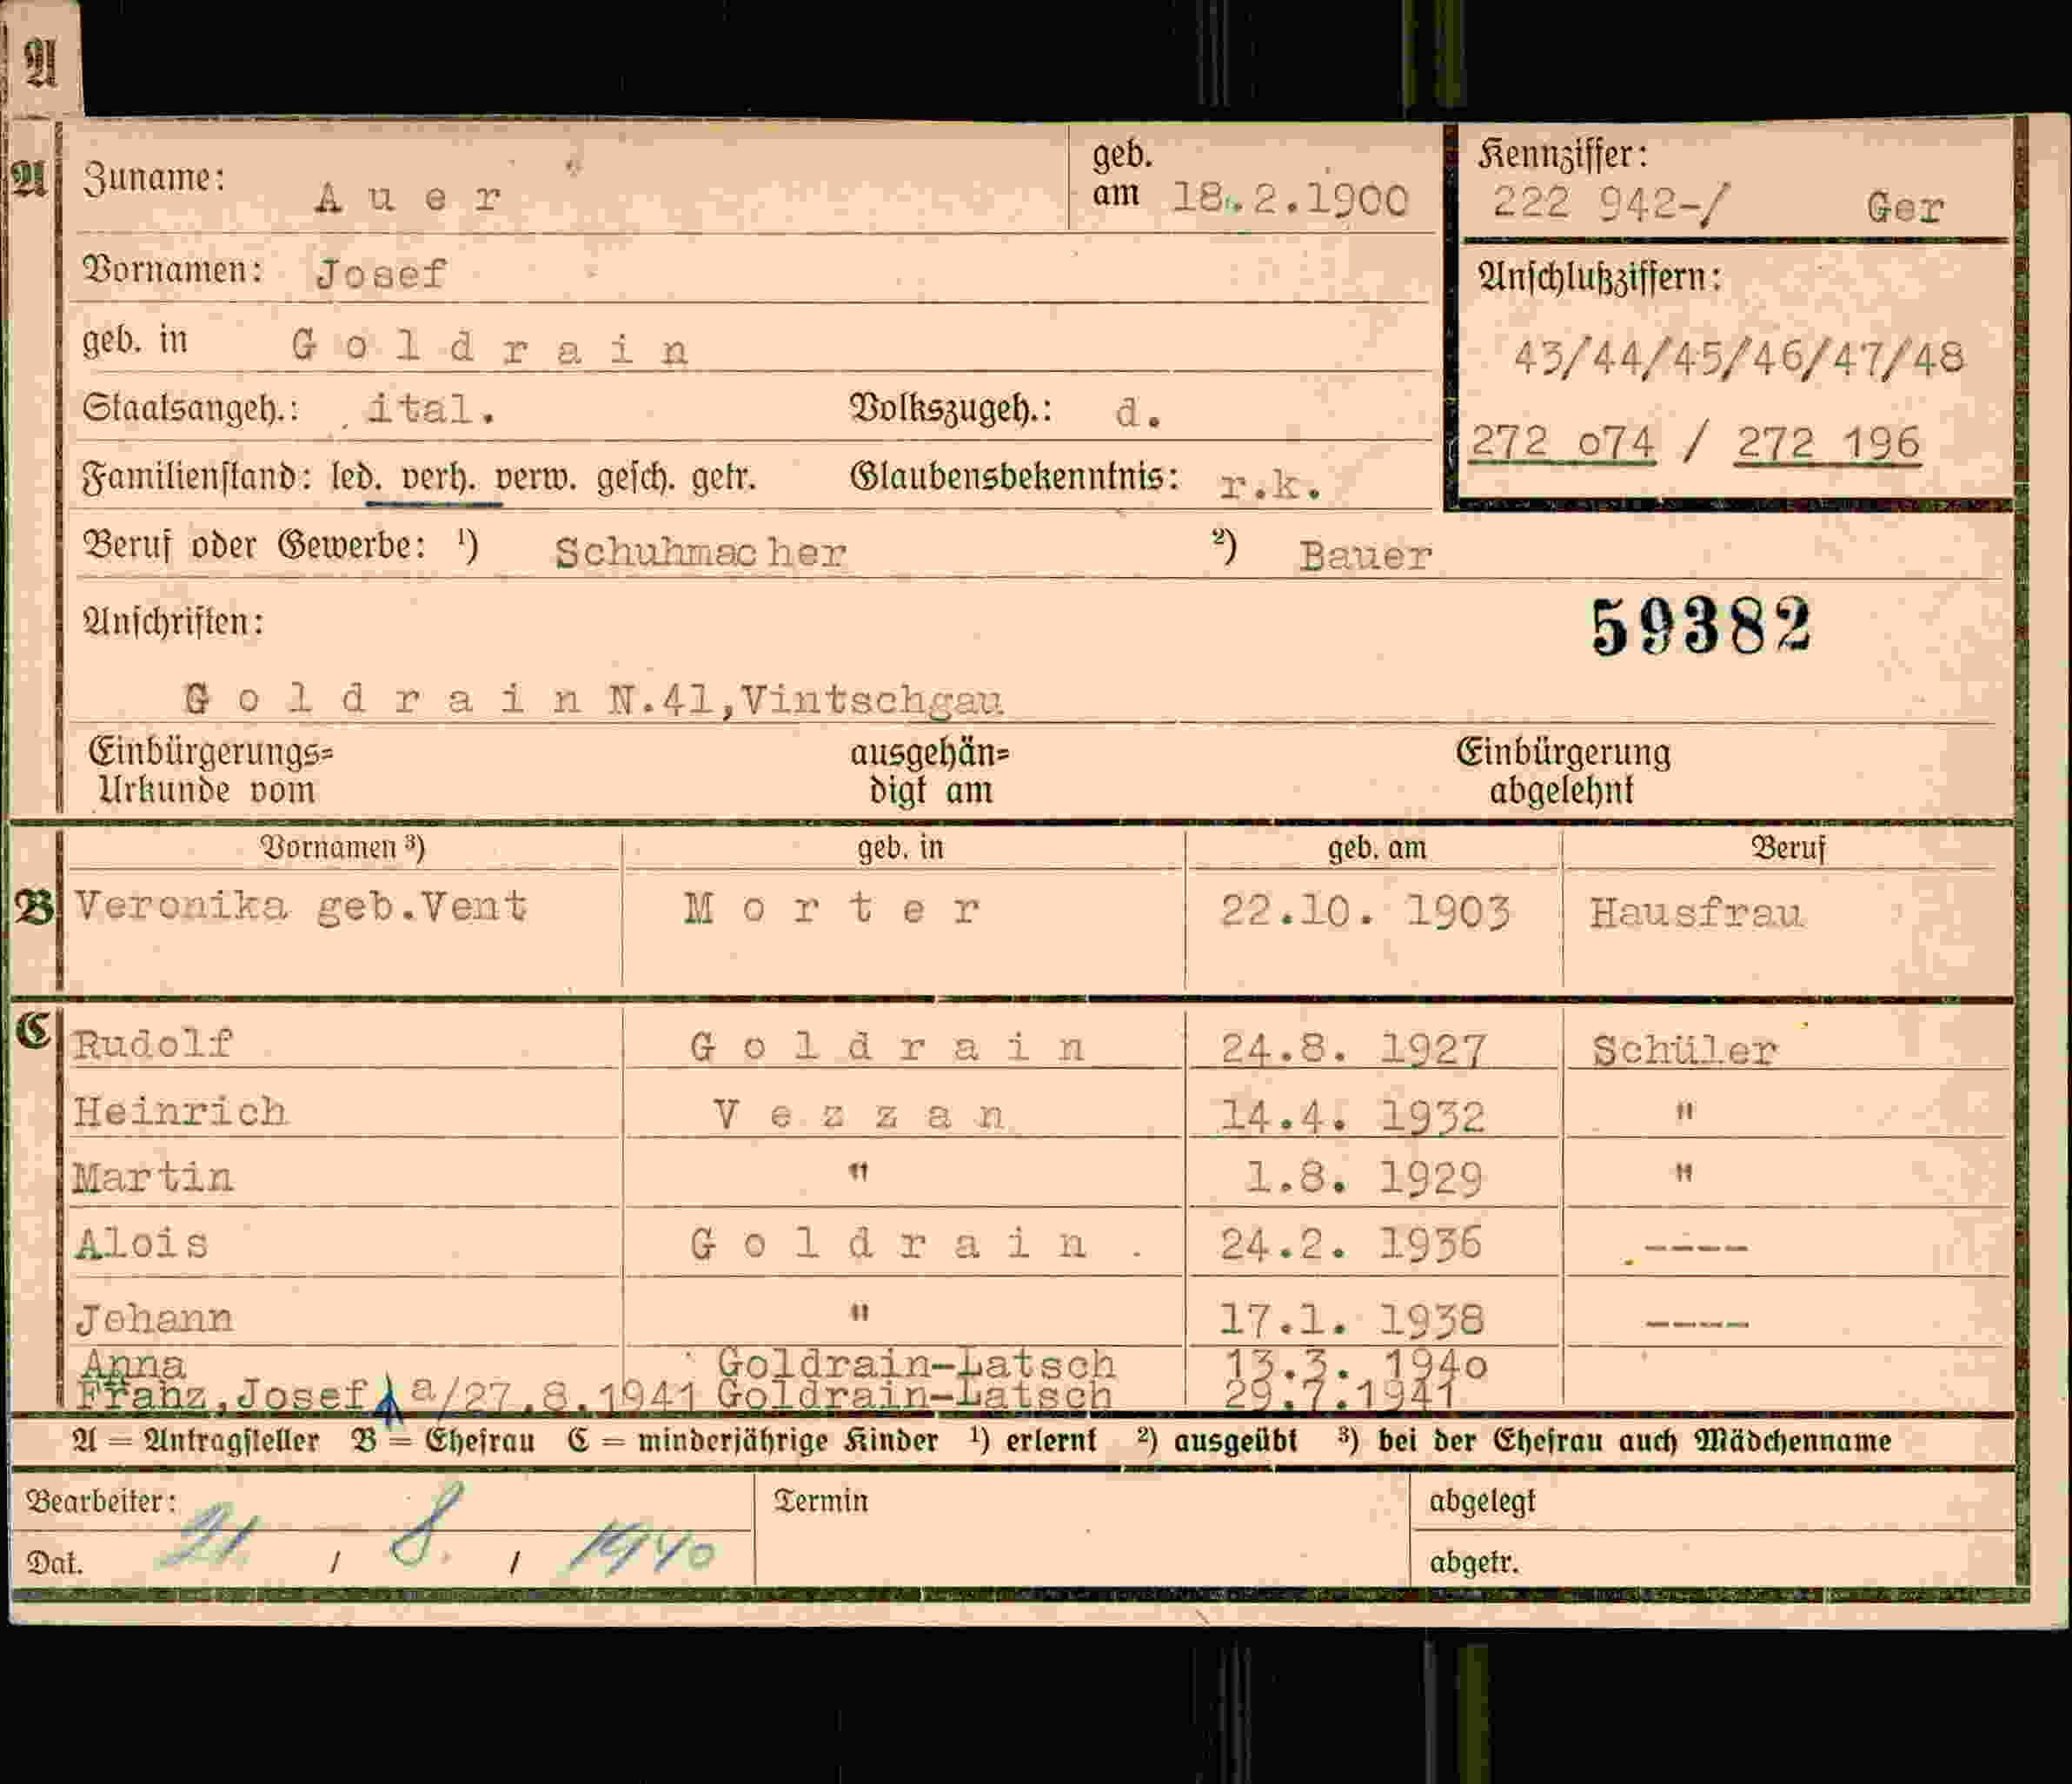 A
A Zuname: A u e r geb. am 18.2.1900 Kennziffer: 222 942-/ Ger
Vornamen: Josef Anschlußziffern:
geb. in G o l d r a i n 43/44/45/46/47/48
Staatsangeh.: ital. Volkszugeh.: d. 272 o74 / 272 196
Familienstand: led. verh. verw. gesch. getr. Glaubensbekenntnis: r.k.
Beruf oder Gewerbe: ¹) Schuhmacher ²) Bauer
Anschriften: 59382
G o l d r a i n N.41,Vintschgau
Einbürgerungs= ausgehän= Einbürgerung
Urkunde vom digt am abgelehnt
Vornamen ³) geb. in geb. am Beruf
B Veronika geb.Vent M o r t e r 22.10. 1903 Hausfrau
C Rudolf G o l d r a i n 24.8. 1927 Schüler
Heinrich V e z z a n 14.4. 1932 "
Martin " 1.8. 1929 "
Alois G o l d r a i n . 24.2. 1936 ----
Johann " 17.1. 1938 ----
Anna Goldrain-Latsch 13.3. 194o
Franz,Josef a/27.8.1941 Goldrain-Latsch 29.7.1941
A = Antragsteller B = Ehefrau C = minderjährige Kinder ¹) erlernt ²) ausgeübt ³) bei der Ehefrau auch Mädchenname
Bearbeiter: Termin abgelegt
Dat. 21 / 8. / 1940 abgetr.